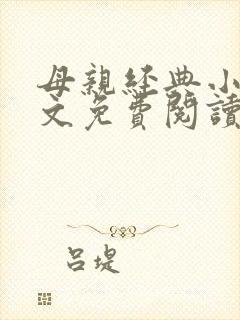 母親經典小
文免費閱讀
呂堤